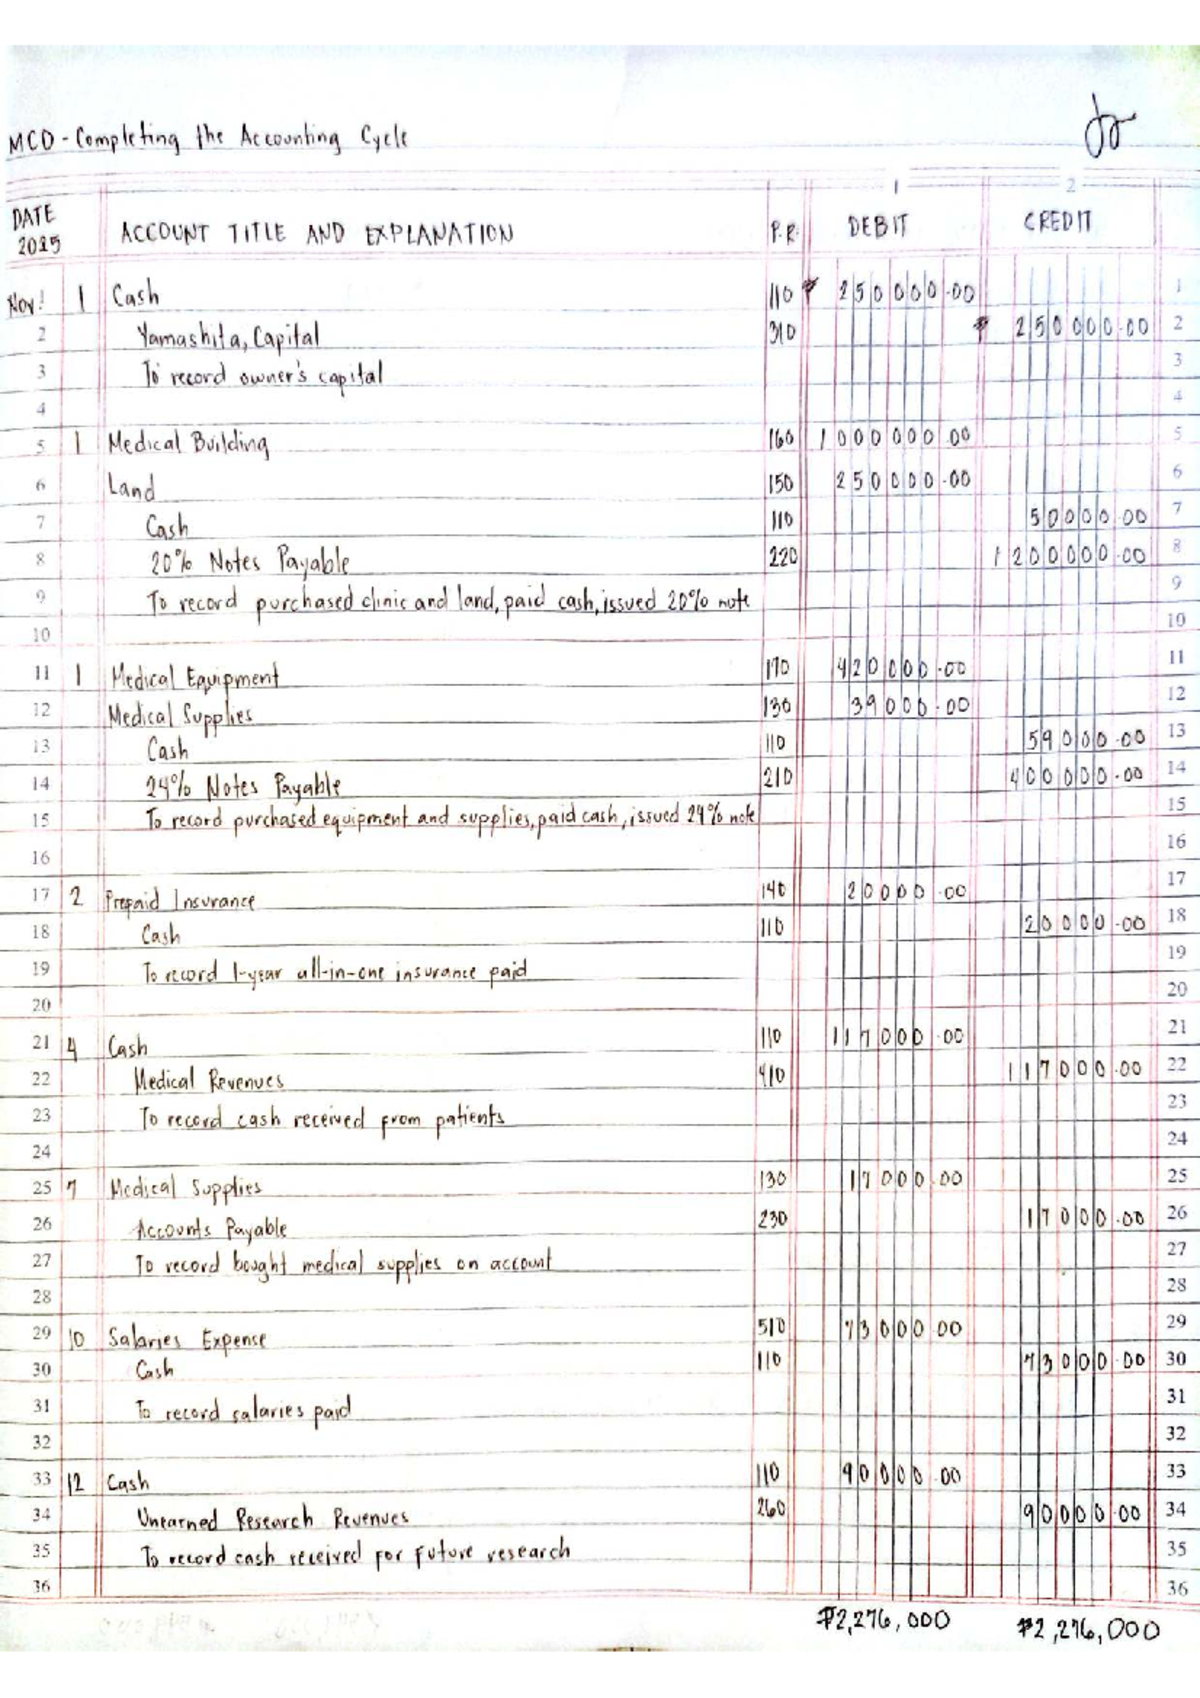 MCD - Completing the Accounting Cycle
1 2
DATE 2025 ACCOUNT TITLE AND EXPLANATION P.R. DEBIT CREDIT
Nov. 1 Cash 110 ₱ 250000.00 1
2 Yamashita, Capital 310 ₱ 250000.00 2
3 To record owner's capital 3
4 4
5 1 Medical Building 160 1000000.00 5
6 Land 150 250000.00 6
7 Cash 110 50000.00 7
8 20% Notes Payable 220 1200000.00 8
9 To record purchased clinic and land, paid cash, issued 20% note 9
10 10
11 1 Medical Equipment 170 420000.00 11
12 Medical Supplies 130 39000.00 12
13 Cash 110 59000.00 13
14 24% Notes Payable 210 400000.00 14
15 To record purchased equipment and supplies, paid cash, issued 24% note 15
16 16
17 2 Prepaid Insurance 140 20000.00 17
18 Cash 110 20000.00 18
19 To record 1-year all-in-one insurance paid 19
20 20
21 4 Cash 110 117000.00 21
22 Medical Revenues 410 117000.00 22
23 To record cash received from patients 23
24 24
25 7 Medical Supplies 130 17000.00 25
26 Accounts Payable 230 17000.00 26
27 To record bought medical supplies on account 27
28 28
29 10 Salaries Expense 510 73000.00 29
30 Cash 110 73000.00 30
31 To record salaries paid 31
32 32
33 12 Cash 110 90000.00 33
34 Unearned Research Revenues 260 90000.00 34
35 To record cash received for future research 35
36 36
₱2,276,000 ₱2,276,000